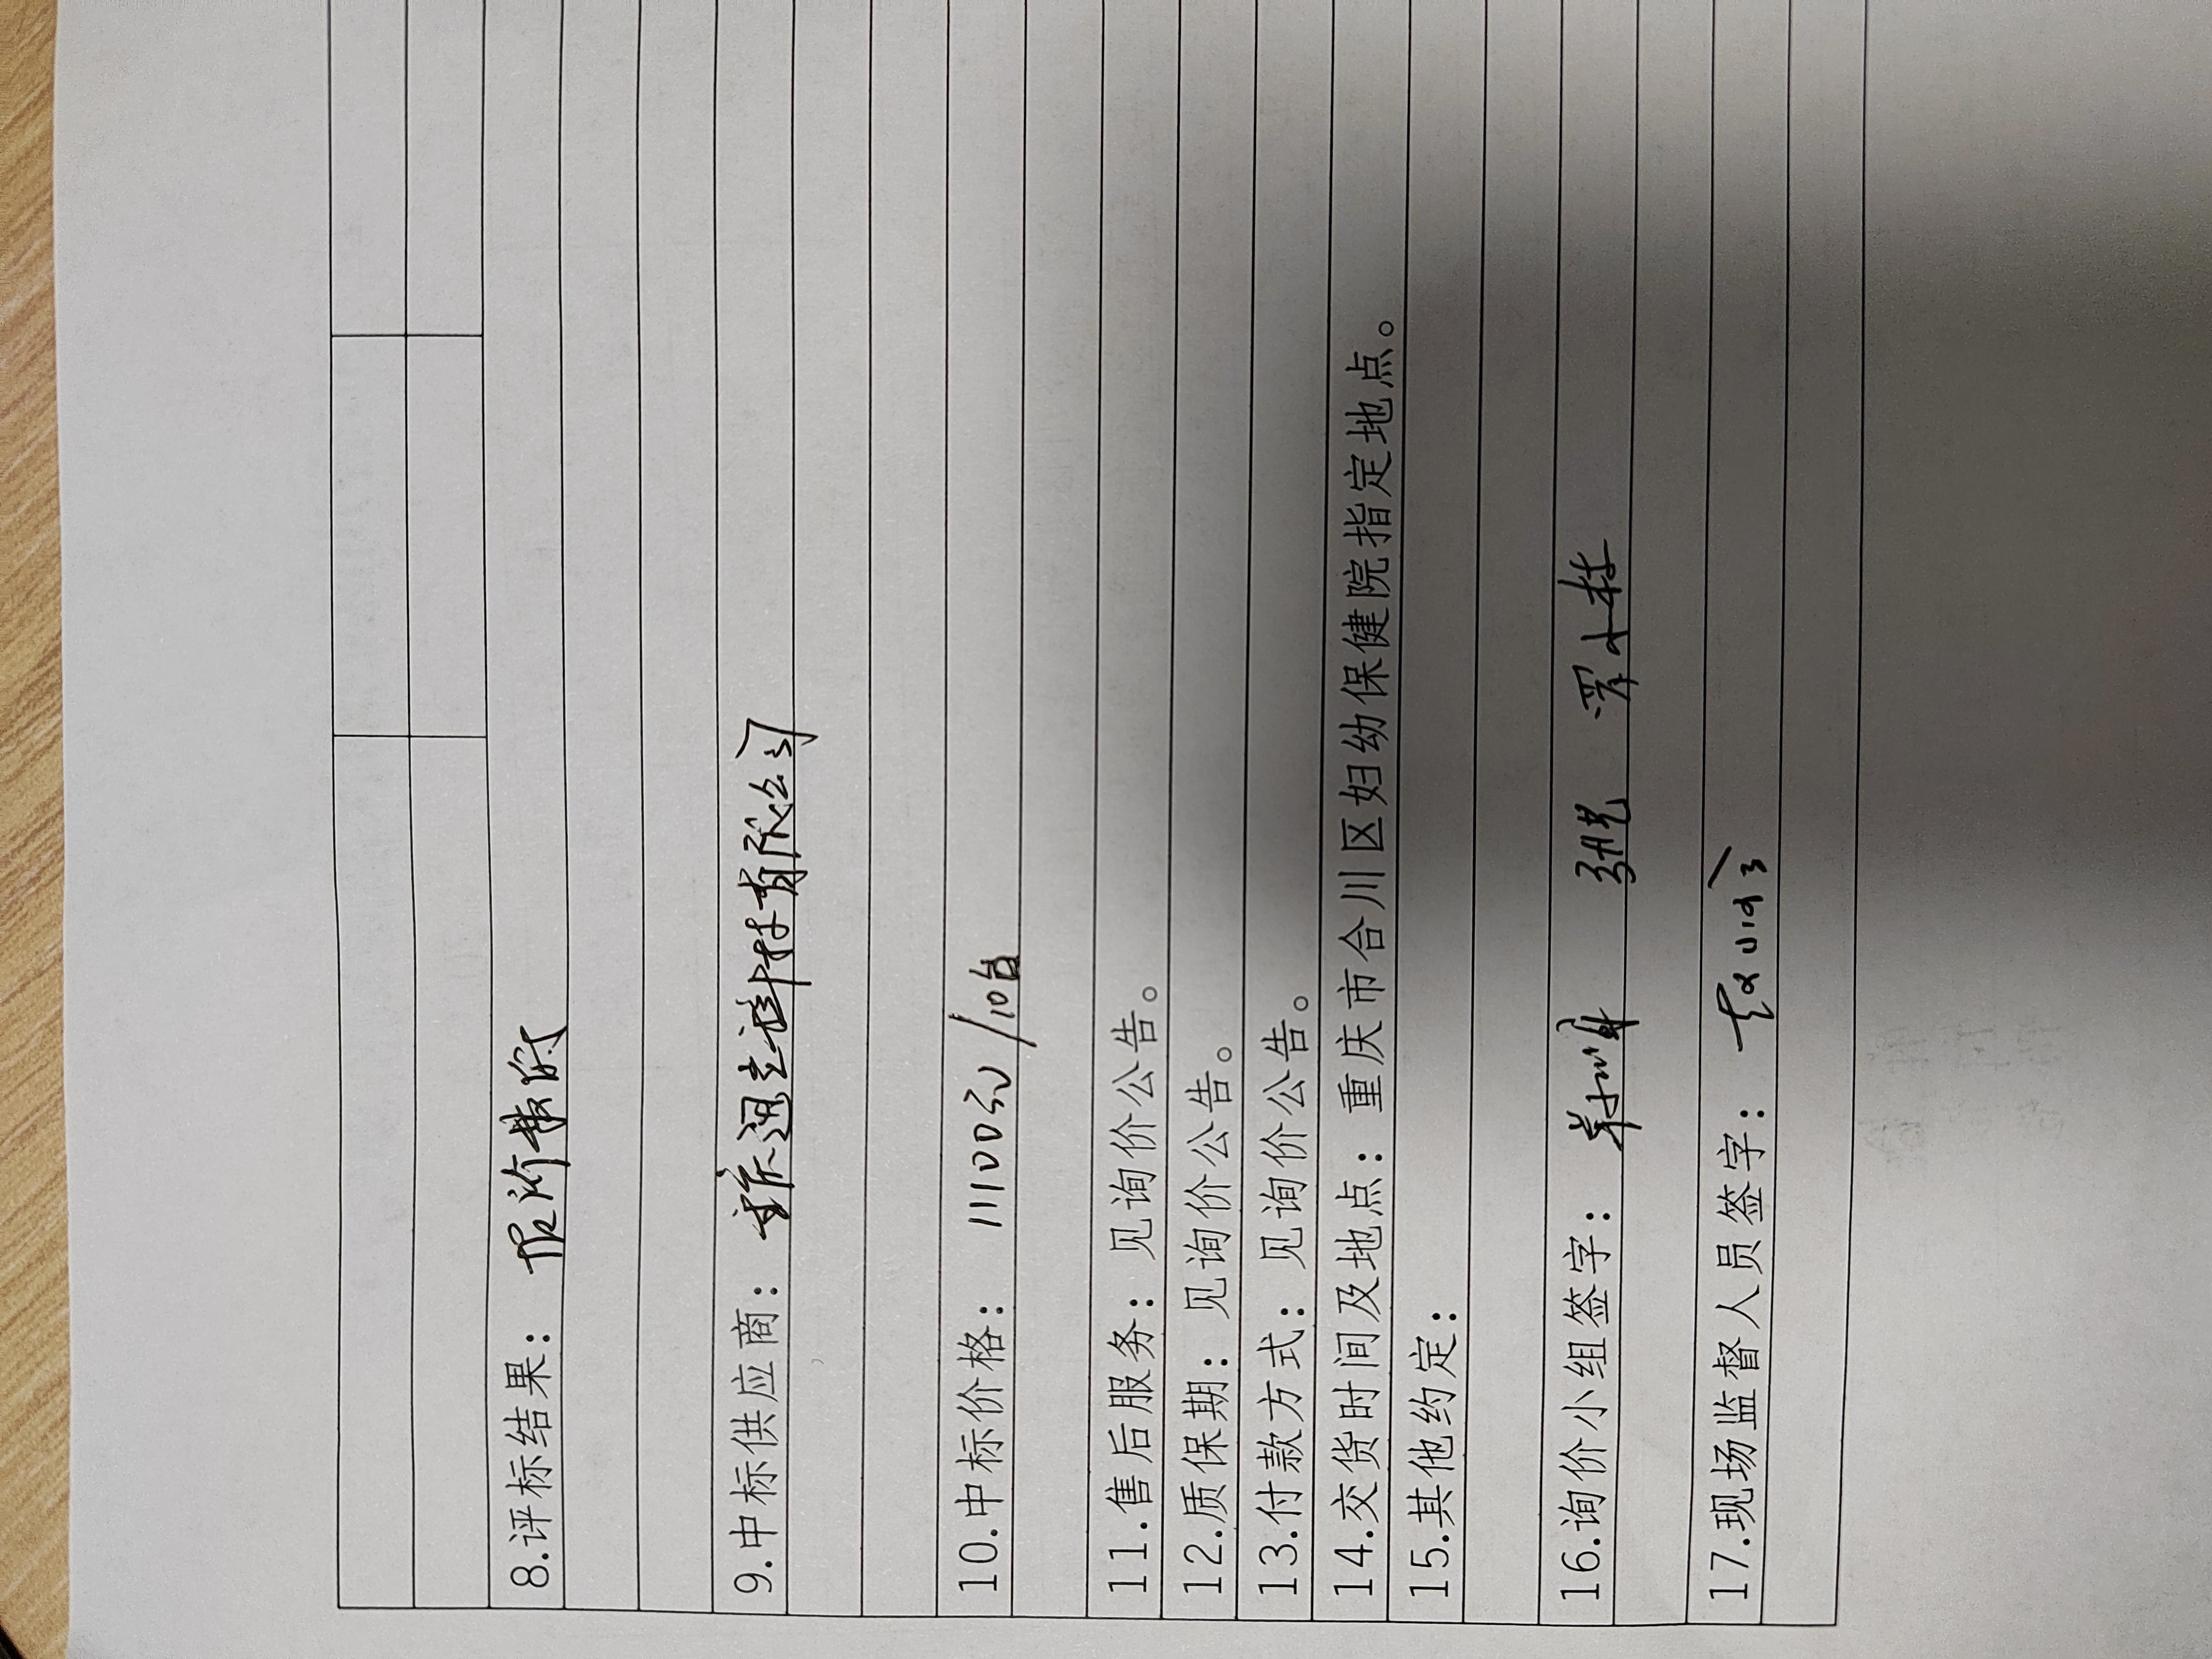 8.评标结果：
9.中标供应商：重庆迅志科技有限公司
10.中标价格：11100元/10台
11.售后服务：见询价公告。
12.质保期：见询价公告。
13.付款方式：见询价公告。
14.交货时间及地点：重庆市合川区妇幼保健院指定地点。
15.其他约定：
16.询价小组签字：
17.现场监督人员签字：